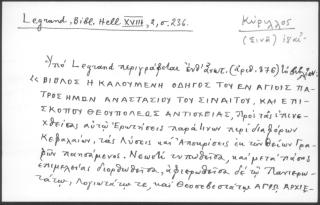 Legrand, Bibl. Hell. XVIII, 2, σ. 236.
Κύριλλος
(Σινᾶ)
Ὑπὸ Legrand περιγράφεται ἐνθ' ἀνωτ. (ἀριθ. 876)
« ΒΙΒΛΟΣ Η ΚΑΛΟΥΜΕΝΗ ΟΔΗΓΟΣ ΤΟΥ ΕΝ ΑΓΙΟΙΣ ΠΑ-
ΤΡΟΣ ΗΜΩΝ ΑΝΑΣΤΑΣΙΟΥ ΤΟΥ ΣΙΝΑΙΤΟΥ, ΚΑΙ ΕΠΙ-
ΣΚΟΠΟΥ ΘΕΟΥΠΟΛΕΩΣ ΑΝΤΙΟΧΕΙΑΣ, Πρὸς τὰς ἐπενε-
χθείσας αὐτῷ Ἐρωτήσεις παρά τινων περὶ διαφόρων
Κεφαλαίων, τὰς Λύσεις καὶ Ἀποκρίσεις ἐκ τῶν θείων Γρα-
φῶν ποιησαμένου. Νεωστὶ τυπωθεῖσα, καὶ μετὰ πάσης
ἐπιμελείας διορθωθεῖσα, ἀφιερωθεῖσα δὲ τῷ Πανιερω-
τάτῳ, Λογιωτάτῳ τε, καὶ Θεοσεβεστάτῳ ΑΓΙΩ ΑΡΧΙΕ-